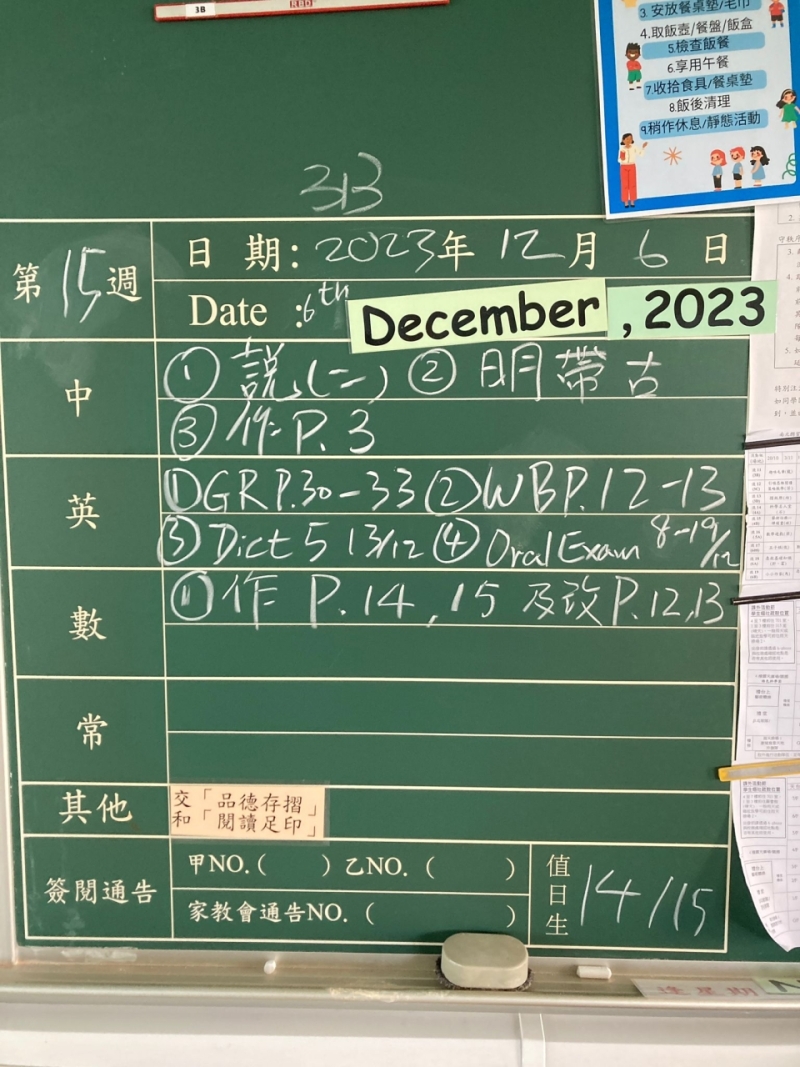 3B
3. 安放餐桌墊/毛巾
4.取飯壺/餐盤/飯盒
5.檢查飯餐
6.享用午餐
7.收拾食具/餐桌墊
8.飯後清理
9.稍作休息/靜態活動
3B
第15週
日期:2023年12月6日
Date :6th December , 2023
中
① 說(二) ② 明帶古
③ 作P.3
英
①GRP.30-33 ②WBP.12-13
③Dict 5 13/12 ④Oral Exam 8-19/12
數
①作 P.14,15 及改P.12,13
常
其他
交「品德存摺」
和「閱讀足印」
簽閱通告
甲NO.( ) 乙NO.( )
家教會通告NO.( )
值日生 14/15
逢星期